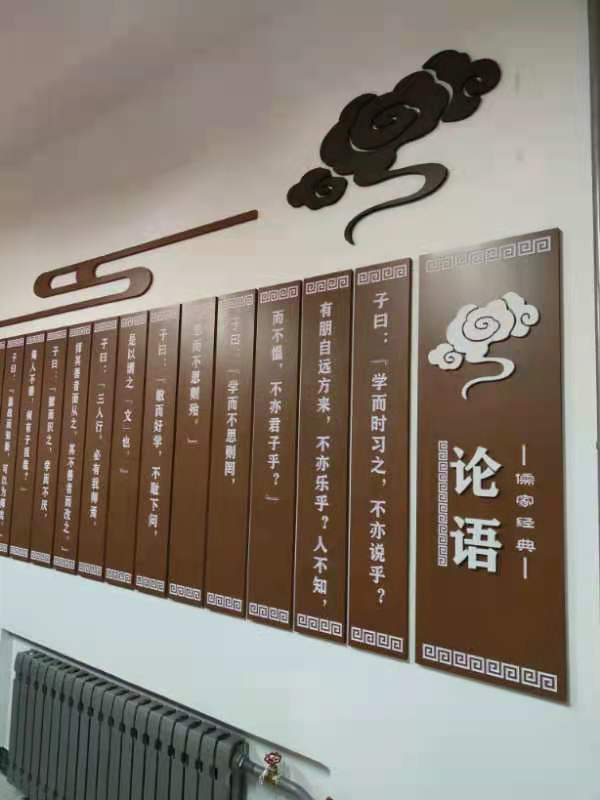 —儒家经典—
论语
子曰：「学而时习之，不亦说乎？
有朋自远方来，不亦乐乎？人不知，
而不愠，不亦君子乎？」
子曰：「学而不思则罔，
思而不思则殆。」
子曰：「敏而好学，不耻下问，
是以谓之「文」也。」
子曰：「三人行，必有我师焉，
择其善者而从之，其不善者而改之。」
子曰：「默而识之，学而不厌，
诲人不倦，何有于我哉？」
子曰：「温故而知新，可以为师矣。」